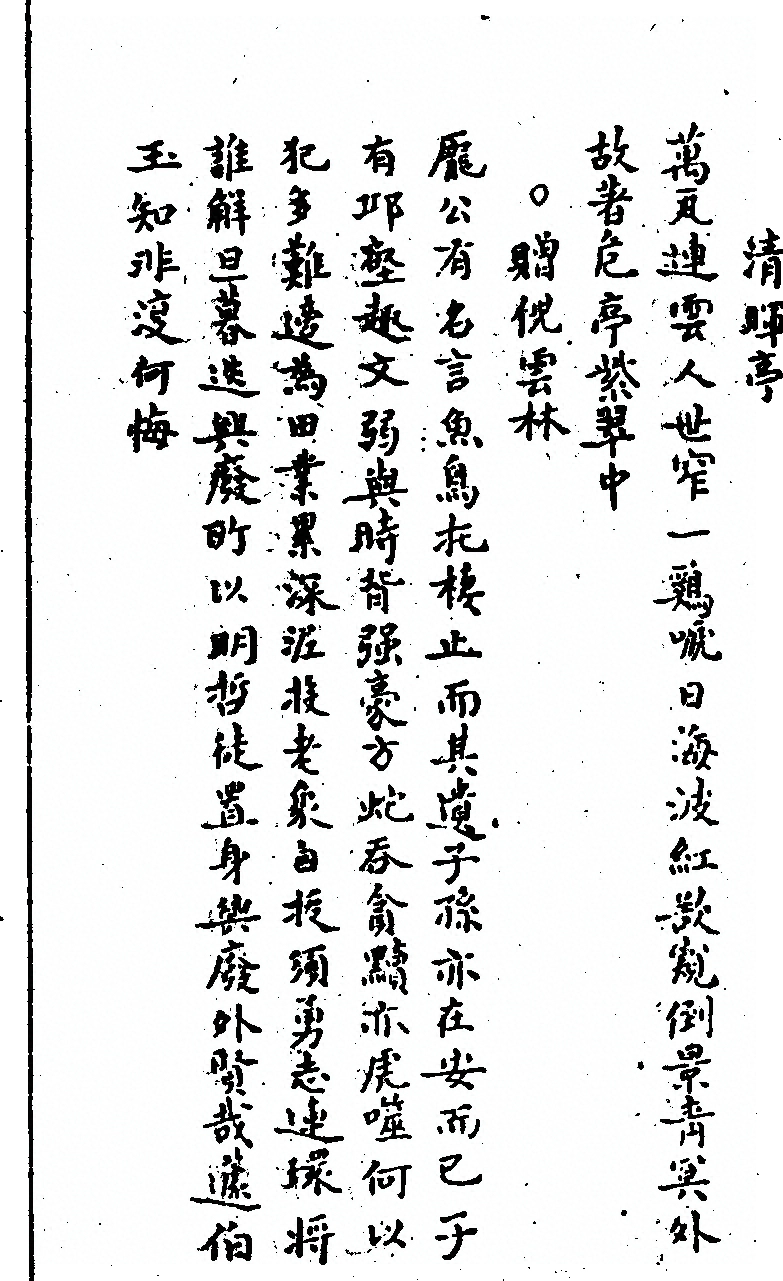 清暉亭
萬瓦連雲人世窄一鷄啼日海波紅欲窺倒景青冥外
故著危亭紫翠中
○贈倪雲林
龐公有名言魚鳥托棲止而其遺子孫亦在安而已子
有邱壑趣文弱與時背强豪方蛇吞貪黷亦虎噬何以
犯多難邊為田業累深泥投老象自拔須勇志連環將
誰解旦暮迭興廢所以明哲徒置身興廢外賢哉蘧伯
玉知非復何悔